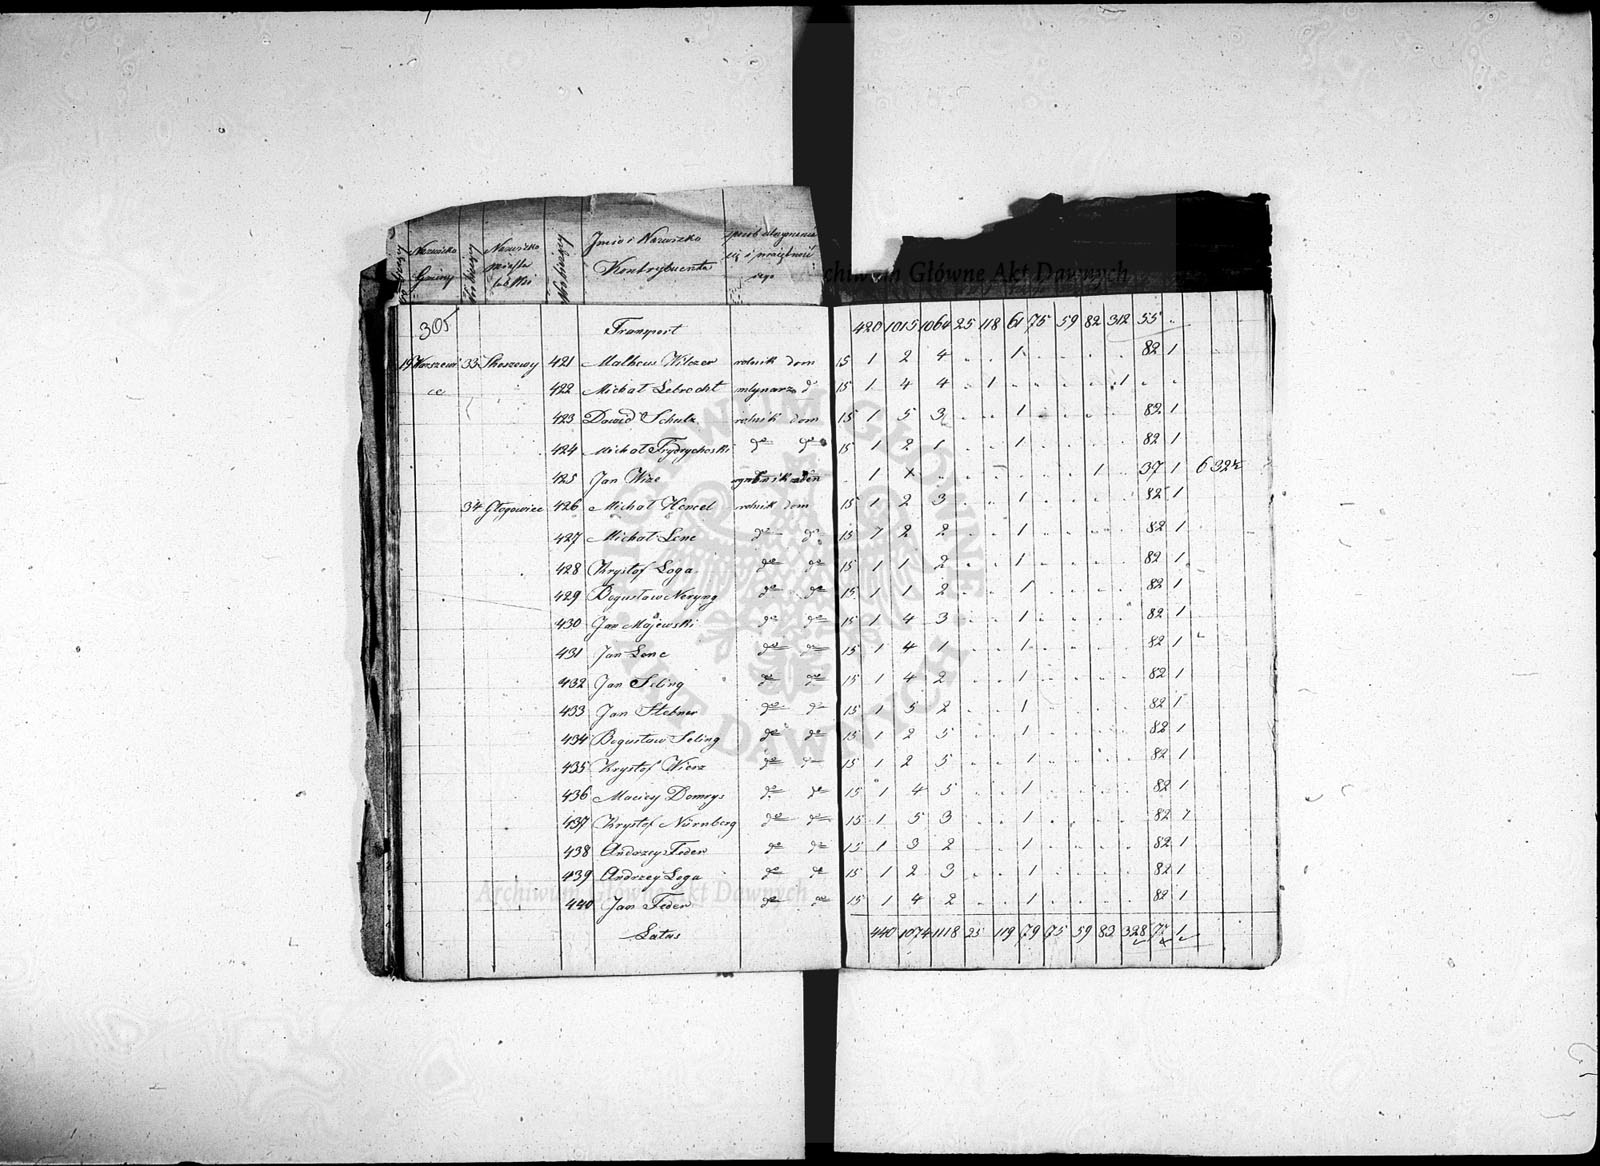 Nazwisko Gminy Nazwisko miasta lub Wsi Imie i Nazwisko Kontrybuenta sposób utrzymania się i
Archiwum Główne Akt Dawnych
305 Transport 420 1015 1064 25 118 61 75 59 82 312 55 ..
19 33 Skoszewy 421 Matheus Wilczer rolnik dom 15 1 2 4 . . 1 . . . . 82 1
ce 422 Michał Lebrecht mlynarz d° 15 1 4 4 . 1 . . . . 1 . .
423 Dawid Schulz rolnik dom 15 1 5 3 . . 1 . . . . 82 1
424 Michał Frydrychoski do do 15 1 2 1 . . 1 . . . . 82 1
425 Jan Wize . 1 . . . . . . 1 . 37 1 6 32
34 Głogowiec 426 Michał Hencel rolnik dom 15 1 2 3 . . 1 . . . . 82 1
427 Michał Lene do do 15 1 2 2 . . 1 . . . . 82 1
428 Krystof Loga do do 15 1 1 2 . . 1 . . . . 82 1
429 Bogusław Neryng do do 15 1 1 2 . . 1 . . . . 82 1
430 Jan Majewski do do 15 1 4 3 . . 1 . . . . 82 1
431 Jan Lene do do 15 1 4 1 . . 1 . . . . 82 1
432 Jan Seling do do 15 1 4 2 . . 1 . . . . 82 1
433 Jan Stebner do do 15 1 5 2 . . 1 . . . . 82 1
434 Bogusław Seling do do 15 1 2 5 . . 1 . . . . 82 1
435 Krystof Wierz do do 15 1 2 5 . . 1 . . . . 82 1
436 Maciey Domrys do do 15 1 4 5 . . 1 . . . . 82 1
437 Krystof Nürnberg do do 15 1 5 3 . . 1 . . . . 82 1
438 Andrzey Feder do do 15 1 3 2 . . 1 . . . . 82 1
439 Andrzey Loga do do 15 1 2 3 . . 1 . . . . 82 1
440 Jan Feder do do 15 1 4 2 . . 1 . . . . 82 1
Archiwum Główne Akt Dawnych
Latus 440 1074 1118 25 119 79 75 59 83 328 77 1
ARCHIWUM GŁÓWNE AKT DAWNYCH